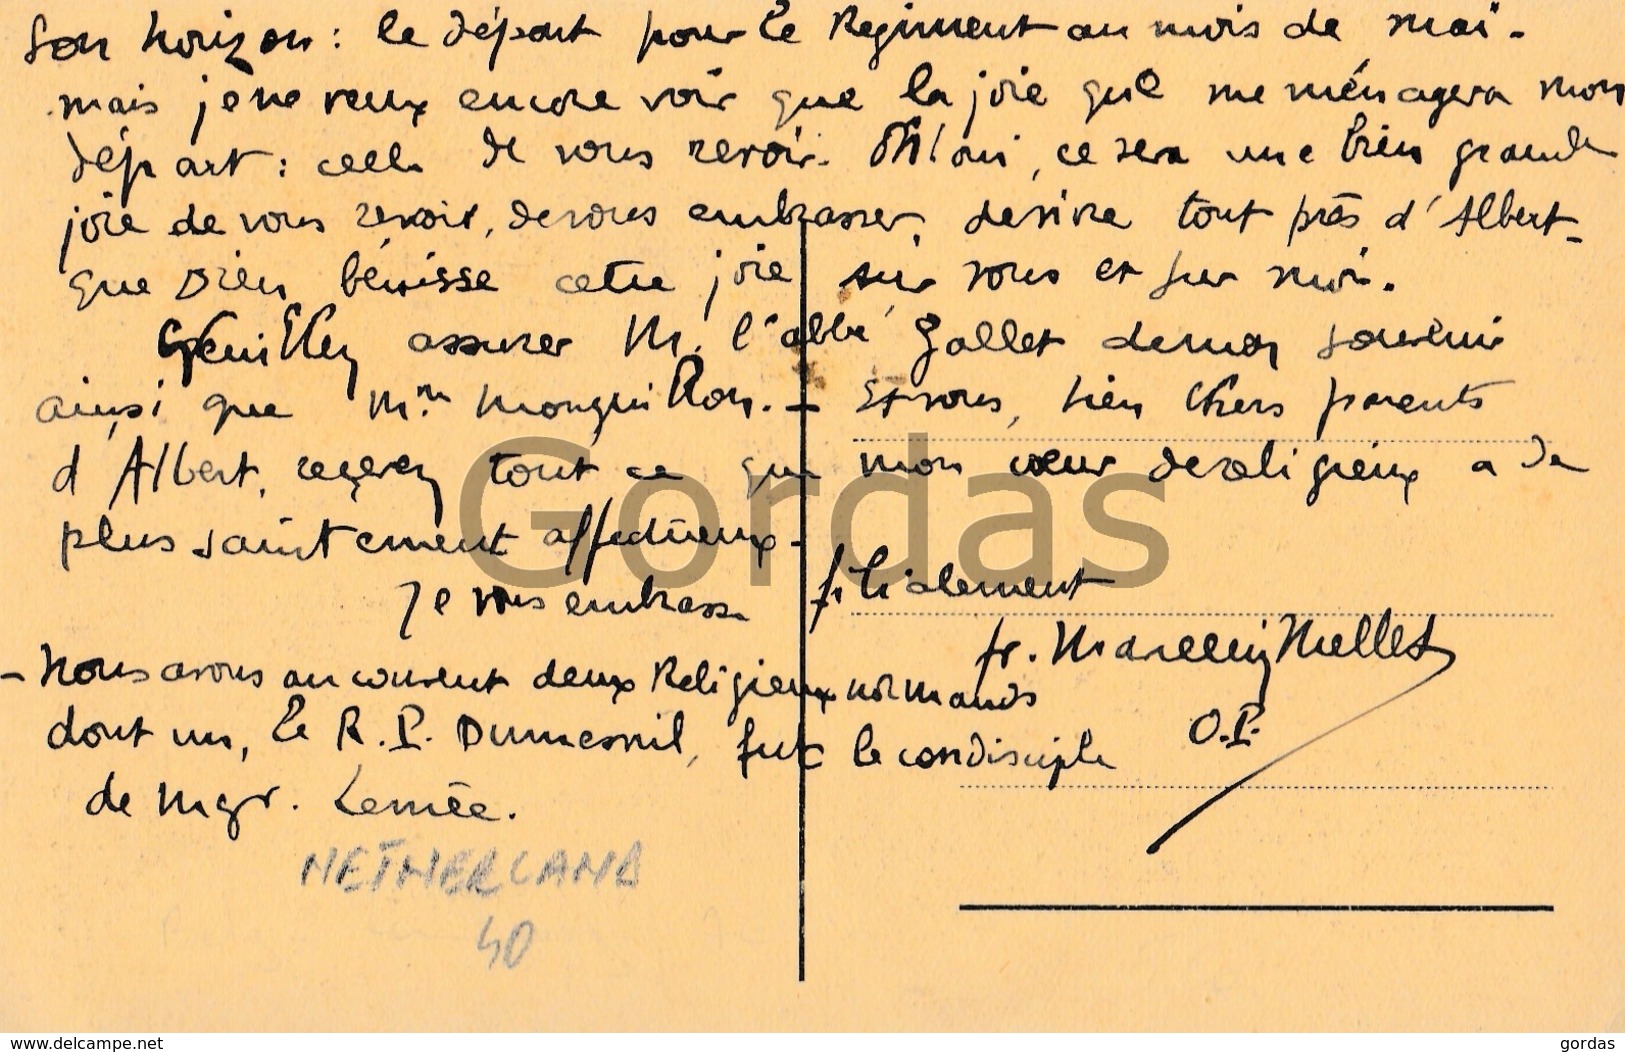 son horizon : le départ pour le Regiment au mois de mai -
mais je ne veux encore voir que la joie que me ménagera mon
départ : celle de vous revoir. Oh! oui, ce sera une bien grande
joie de vous revoir, de vous embrasser, de vivre tout près d'Albert -
Que Dieu bénisse cette joie sur vous et sur moi.
Veuillez assurer M. l'abbé Gallet de mon souvenir
ainsi que Mme Monguillon. - Et vous, bien chers parents
d'Albert, recevez tout ce que mon coeur de religieux a de
plus saintement affectueux -
Je vous embrasse filialement
fr. Marcellin Mellet
O.P.
- Nous avons au couvent deux Religieux normands
dont un, le R. P. Dumesnil, fut le condisciple
de Mgr. Lemée.
NETHERLAND
40
Gordas
www.delcampe.net
gordas